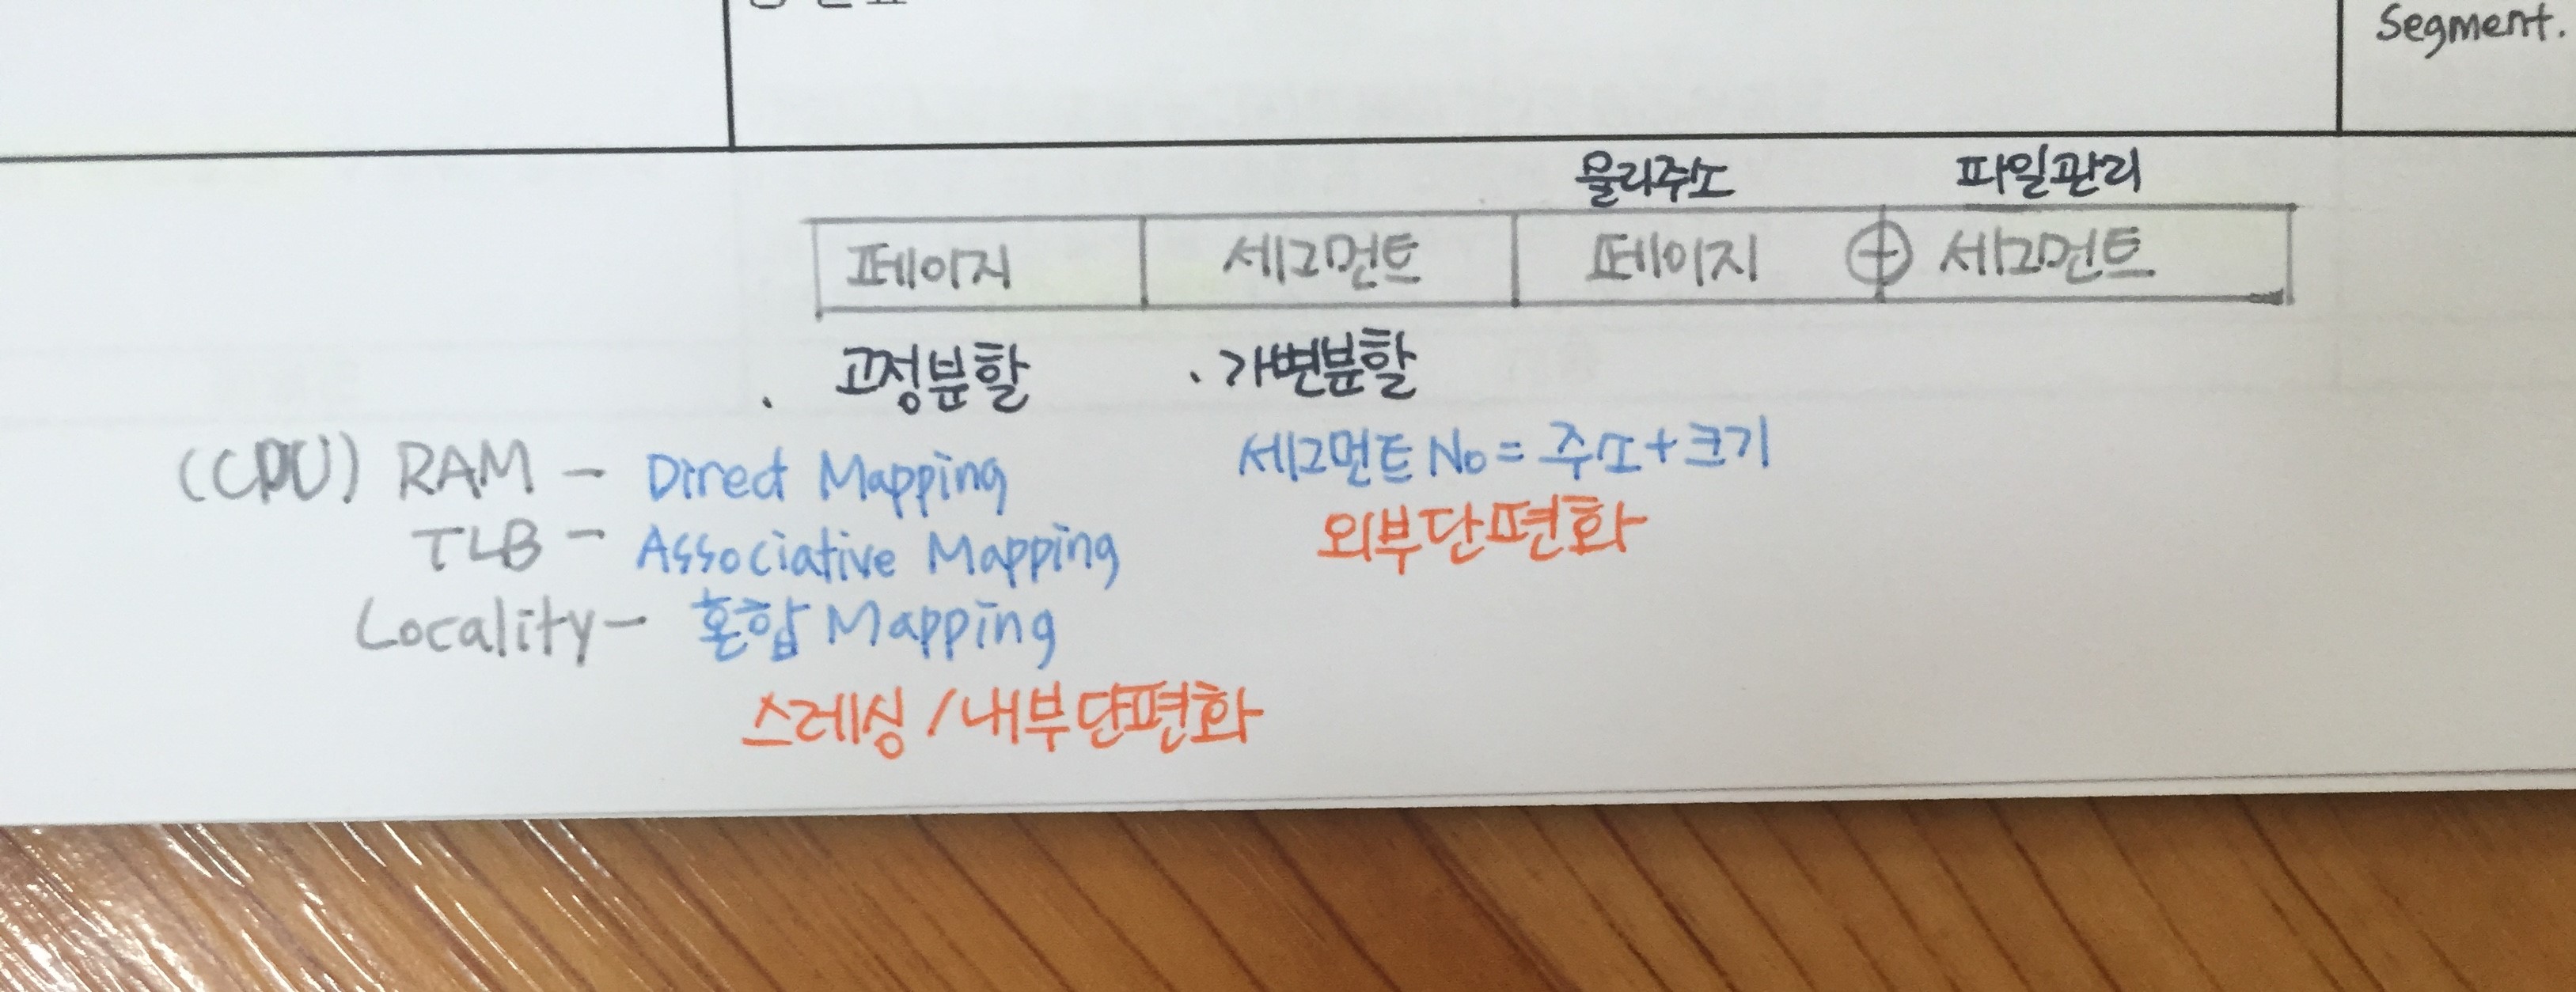 Segment.
물리주소 파일관리
페이지 세그먼트 페이지 + 세그먼트
. 고정분할 . 가변분할
(CPU) RAM - Direct Mapping 세그먼트 No = 주소 + 크기
TLB - Associative Mapping 외부단편화
Locality - 혼합 Mapping
스레싱 / 내부단편화